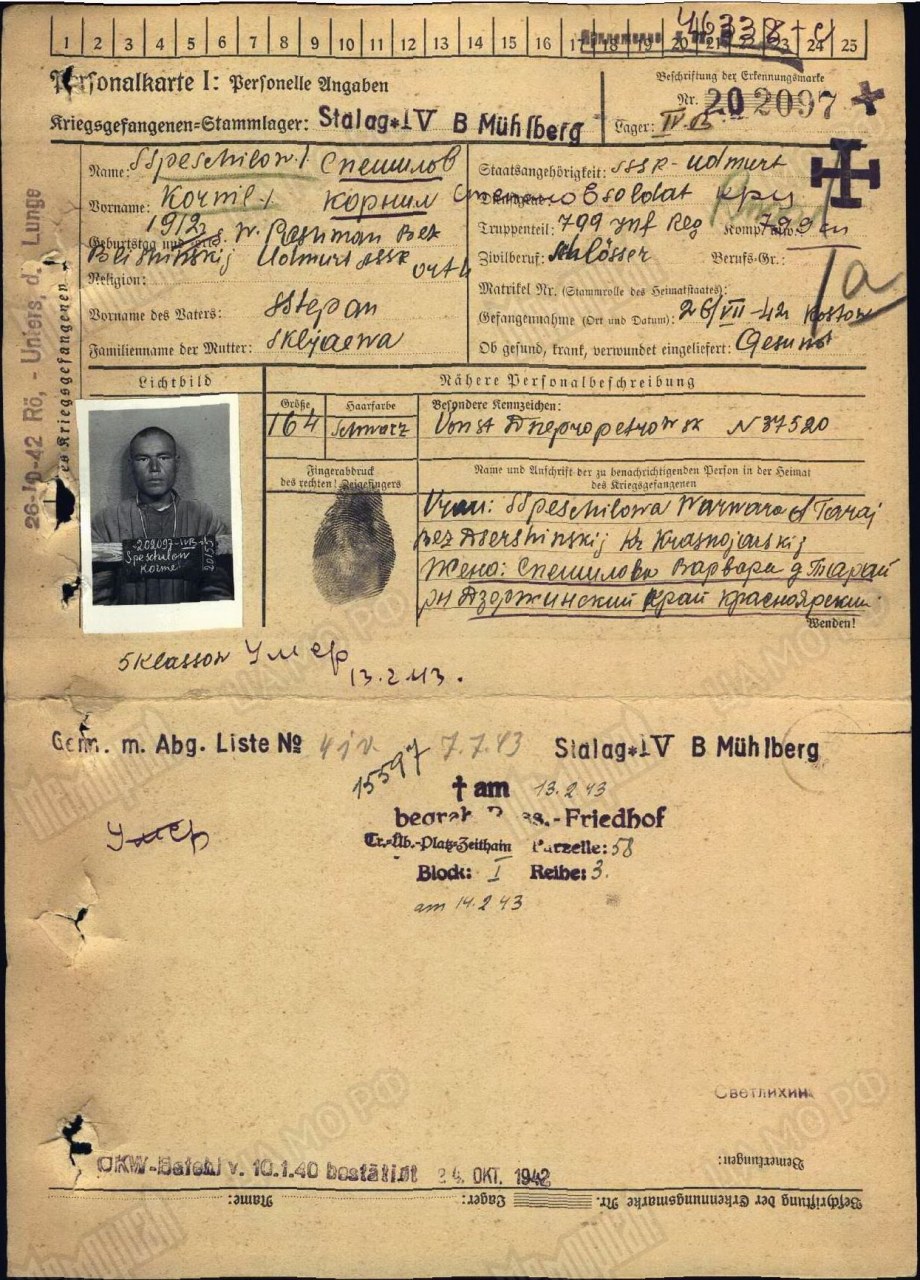 1 2 3 4 5 6 7 8 9 10 11 12 13 14 15 16 17 18 19 20 21 23 24 25
Personalkarte I: Personelle Angaben
Beschriftung der Erkennungsmarke
Nr. 202097
Kriegsgefangenen-Stammlager: Stalag*IV B Mühlberg
Lager: IV B
Name: Speschilow Спешилов
Vorname: Kornel Корнил
1912
Geburtstag und
Udmurt ASSR
Religion: orth
Vorname des Vaters: Stepan
Familienname der Mutter: Skljaewa
Staatsangehörigkeit: SSSR - Udmurt
soldat
Truppenteil: 799 Inf Reg
Zivilberuf: Schlösser Berufs-Gr.:
Matrikel Nr. (Stammrolle des Heimatstaates):
Gefangennahme (Ort und Datum): 26/VII-42 Rostow
Ob gesund, krank, verwundet eingeliefert: Gesund
Ta
26-10-42 Rö, - Unters, d. Lunge
des Kriegsgefangenen
Lichtbild
Nähere Personalbeschreibung
Größe
164
Haarfarbe
Schwarz
Besondere Kennzeichen:
Von st Dnepropetrowsk N 37520
Fingerabdruck
des rechten! Zeigefingers
Name und Anschrift der zu benachrichtigenden Person in der Heimat
des Kriegsgefangenen
Frau: Speschilowa Warwara d Taraj
Dsershinskij Kr Krasnojarskij
Жена: Спешилова Варвара д Тарай
рн Дзержинский край Красноярский
Wenden!
202097-IVB
Speschilow
Kornel
5 klassow Умер
13.2.43.
Gem. m. Abg. Liste № 7.7.43 Stalag*IV B Mühlberg
15597
† am 13.2.43
Friedhof
Tr.-Üb.-Platz-Zeithain Parzelle: 58
Block: I Reihe: 3.
am 14.2.43
Умер
Светлихин
OKW-Befehl v. 10.1.40 bestätigt 24. OKT. 1942
Bemerkungen:
Beschriftung der Erkennungsmarke Nr. Lager: Name:
Мемориал
ЦАМО РФ